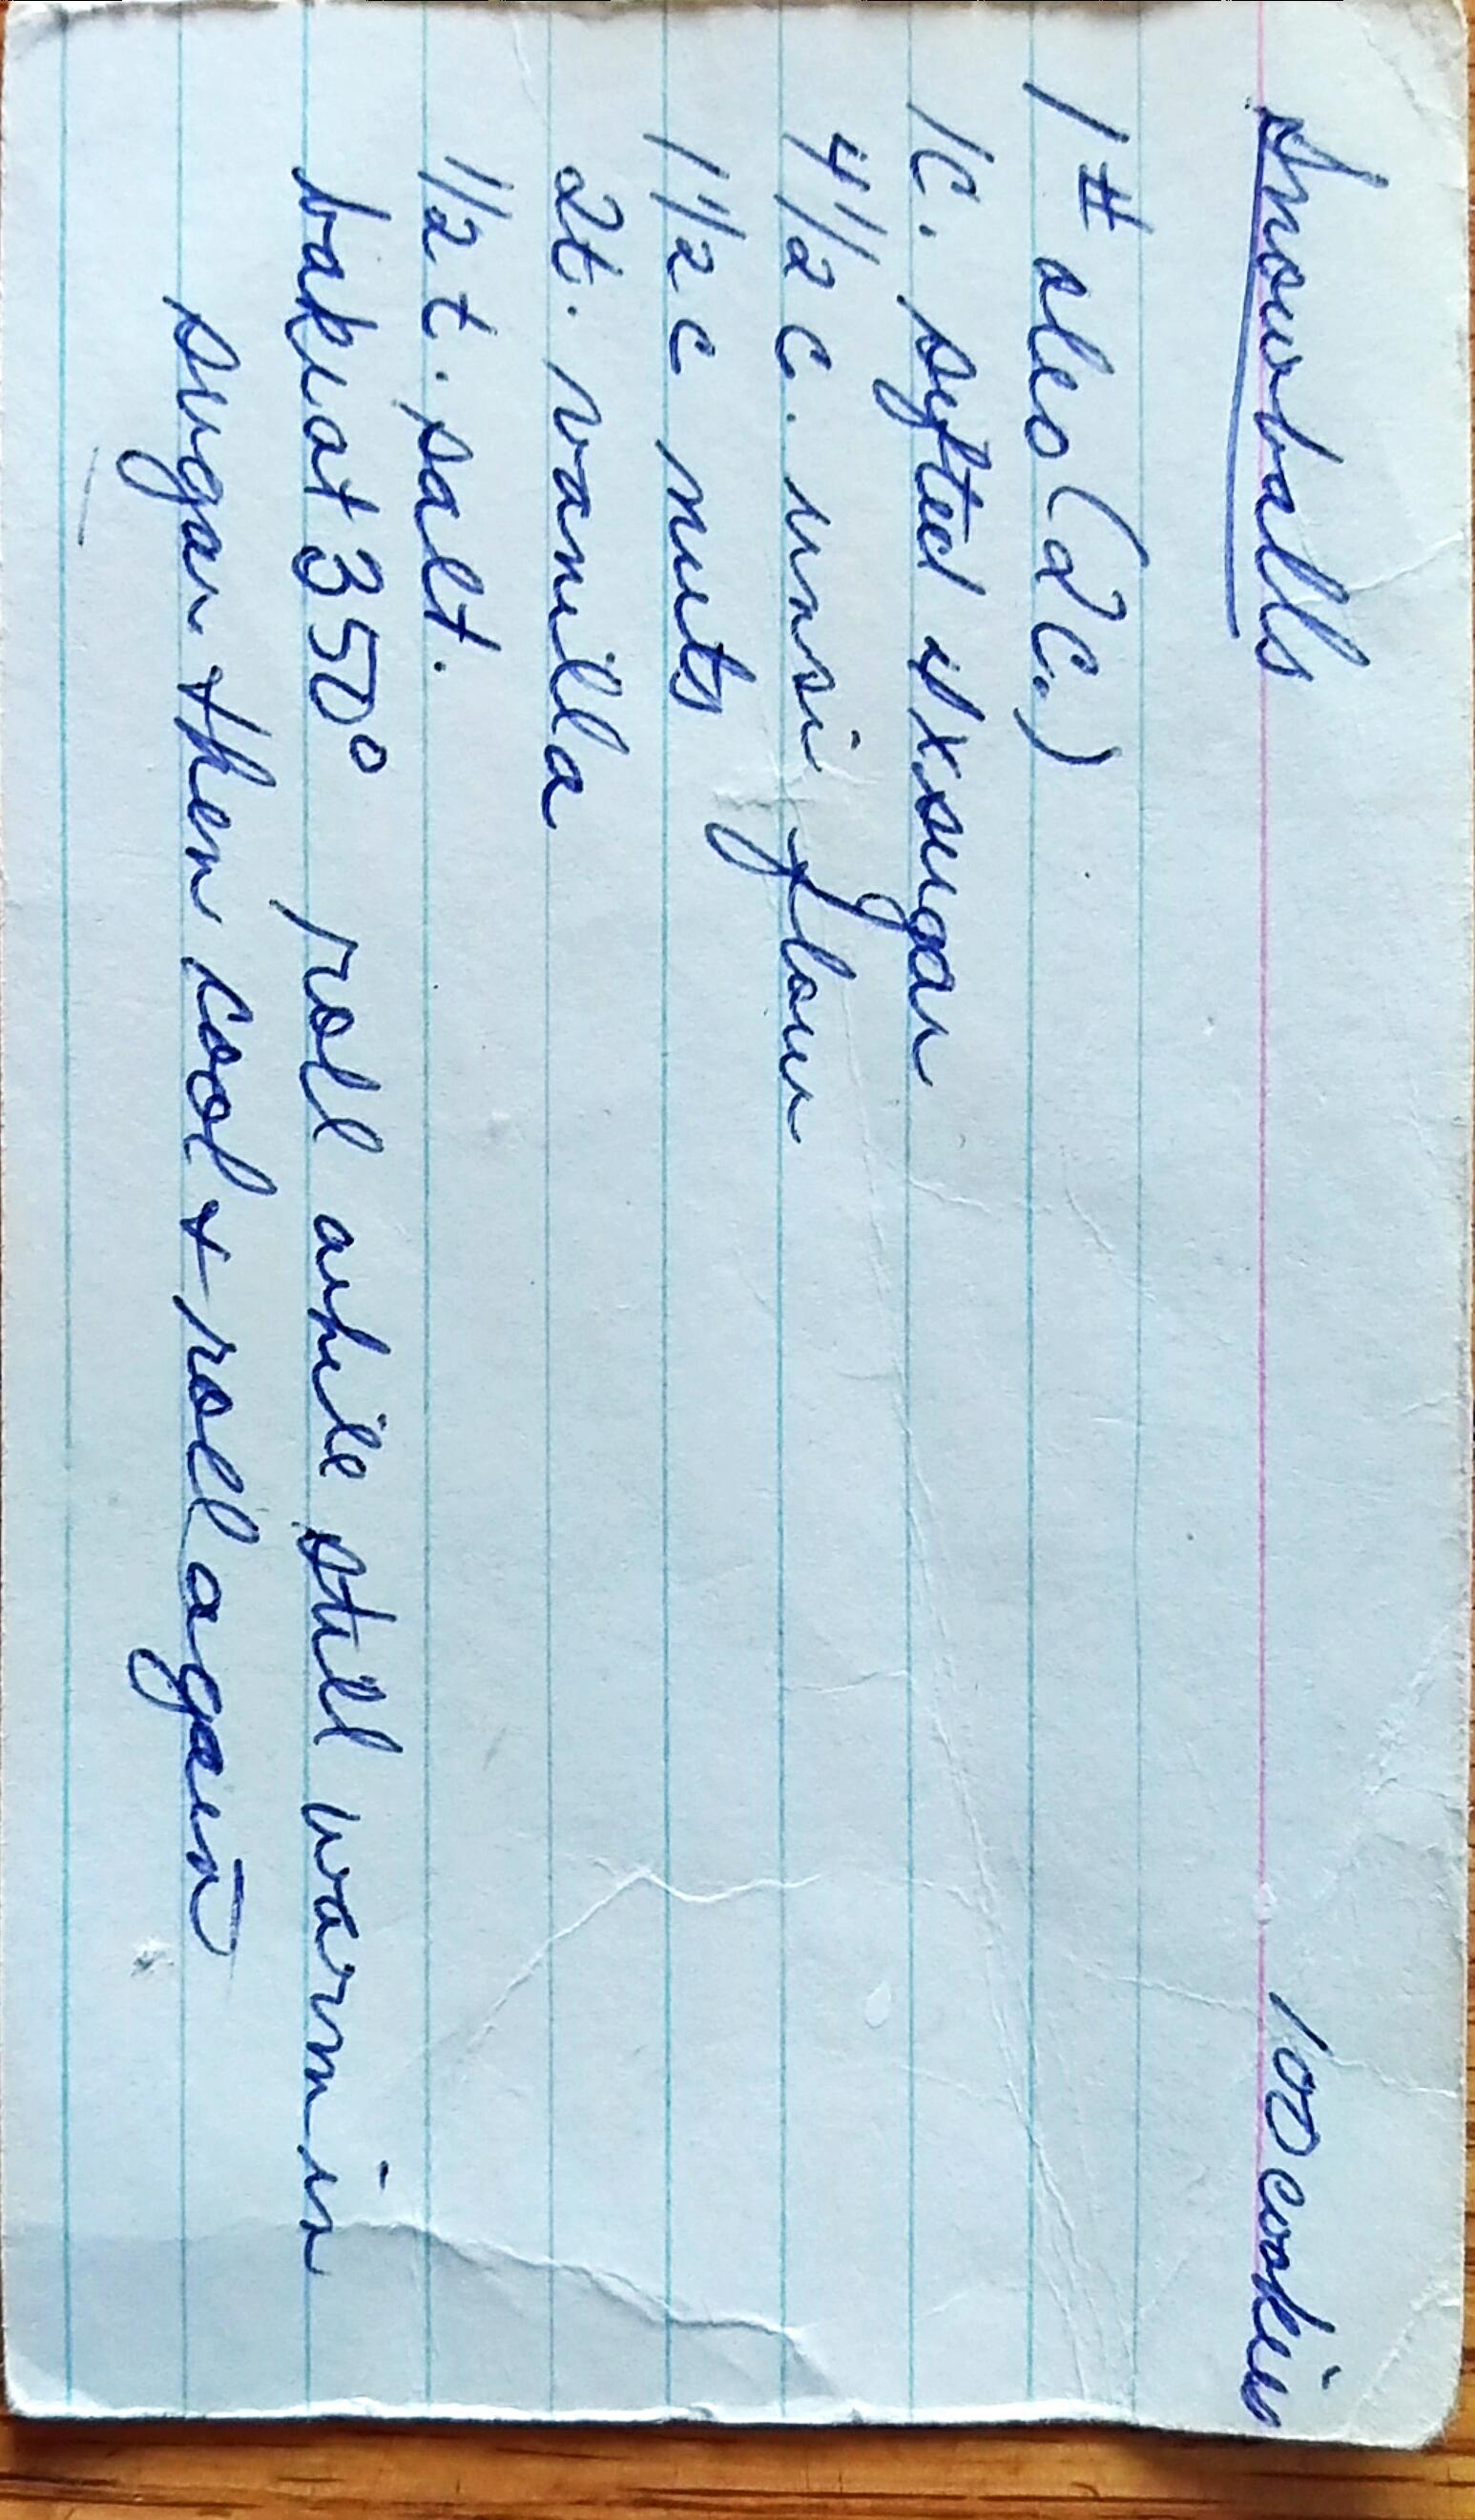 Snowballs 100 cookies
1# oleo (2c.)
1c. syfted 4Xsugar
4 1/2 c. unsi flour
1 1/2 c nuts
2t. vanilla
1/2 t. salt.
bake at 350° roll while still warm in
sugar + then cool + roll again